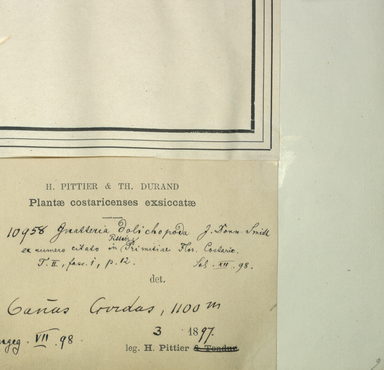 H. PITTIER & TH. DURAND
Plantæ costaricenses exsiccatæ
10958 Guatteria dolichopoda J. Donn Smith
ex numero citato in Pittier Primitiæ Flor. Costaric.
T. II, fasc. 1, p. 12. XII. 98.
det.
Cañas Gordas, 1100 m
3 1897.
VII. 98. leg. H. Pittier & Tonduz
9